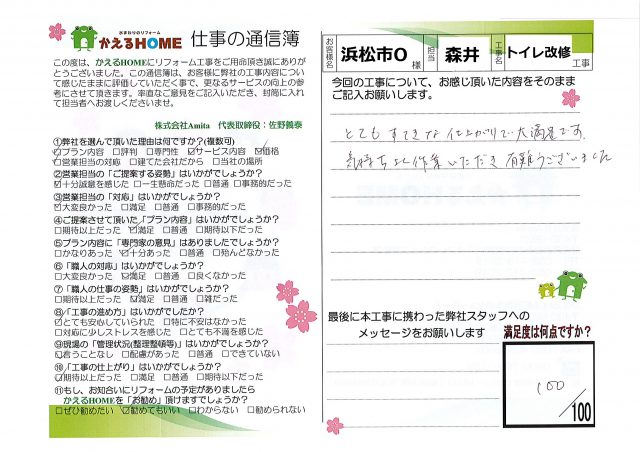 水まわりのリフォーム
かえるHOME
仕事の通信簿
この度は、かえるHOMEにリフォーム工事をご用命頂き誠にありが
とうございました。この通信簿は、お客様に弊社の工事内容につい
て感じたままに評価していただく事で、更なるサービスの向上の参
考にさせて頂きます。率直なご意見をご記入いただき、封筒に入れ
て担当者へお渡しくださいませ。
株式会社Amita 代表取締役：佐野義泰
①弊社を選んで頂いた理由は何ですか?(複数可)
☑プラン内容 □評判 □専門性 ☑サービス内容 ☑価格
□営業担当の対応 □建てた会社だから □当社の場所
②営業担当の「ご提案する姿勢」はいかがでしょうか?
☑十分誠意を感じた □一生懸命だった □普通 □事務的だった
③営業担当の「対応」はいかがでしょうか?
☑大変良かった □満足 □普通 □事務的だった
④ご提案させて頂いた「プラン内容」はいかがでしょうか?
□期待以上だった ☑満足 □普通 □期待以下だった
⑤プラン内容に「専門家の意見」はありましたでしょうか?
□かなりあった ☑十分あった □普通 □殆んどなかった
⑥「職人の対応」はいかがでしょうか?
□大変良かった ☑満足 □普通 □良くなかった
⑦「職人の仕事の姿勢」はいかがでしょうか?
□期待以上だった ☑満足 □普通 □雑だった
⑧「工事の進め方」はいかがでしたか?
☑とても安心していられた □特に不安はなかった
□対応に少しストレスを感じた □とても不満を感じた
⑨現場の「管理状況(整理整頓等)」はいかがでしょうか?
☑言うことなし □配慮があった □普通 □できていない
⑩「工事の仕上がり」はいかがでしょうか?
☑期待以上だった □満足 □普通 □期待以下だった
⑪もし、お知合いにリフォームの予定がありましたら
かえるHOMEを「お勧め」頂けますでしょうか?
□ぜひ勧めたい ☑勧めてもいい □わからない □勧められない
お客様名 浜松市O 様 担当 森井 工事名 トイレ改修 工事
今回の工事について、お感じ頂いた内容をそのまま
ご記入お願いします。
とても すてきな 仕上がりで 大満足です。
気持ちよく作業いただき 有難うございました
最後に本工事に携わった弊社スタッフへの
メッセージをお願いします
満足度は何点ですか?
100
/100